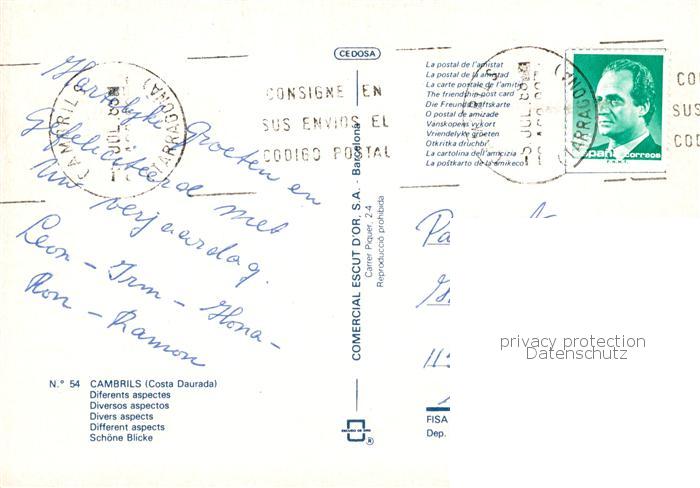 CEDOSA
La postal de l'amistat
La postal de la amistad
La carte postale de l'amitié
The friendship post card
Die Freundschaftskarte
O postal de amizade
Vanskopens vykort
Vriendelyke groeten
Otkritka druchbi
La cartolina dell'amicizia
La postkarto de la amikeco
CAMBRILS
(TARRAGONA)
5 JUL. 88
CONSIGNE EN
SUS ENVIOS EL
CODIGO POSTAL
5 JUL. 88
(TARRAGONA)
españa correos
CO
SUS
COD
Hartelijke groeten en
gefeliciteerd met
Uw verjaardag.
Leon - Irm - Ilona -
Ron - Ramon
COMERCIAL ESCUT D'OR, S.A. - Barcelona
Carrer Piquer, 2-4
Reproducció prohibida
privacy protection
Datenschutz
N.° 54 CAMBRILS (Costa Daurada)
Diferents aspectes
Diversos aspectos
Divers aspects
Different aspects
Schöne Blicke
ESCUDO DE ORO
®
FISA
Dep.